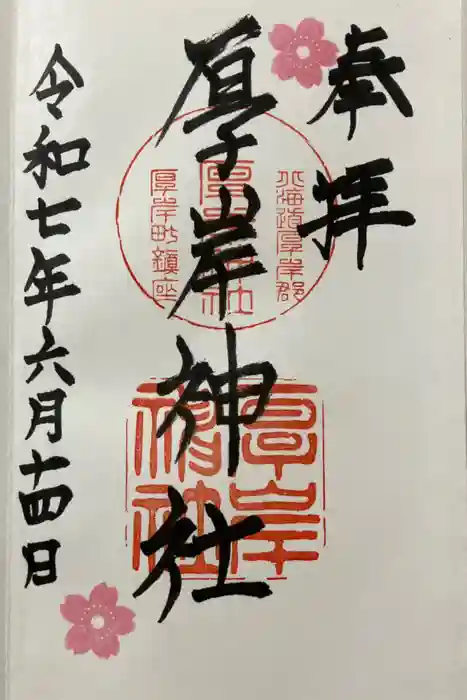 奉拝
厚岸神社
令和七年六月十四日
北海道厚岸郡
厚岸神社
厚岸町鎮座
厚岸
神社